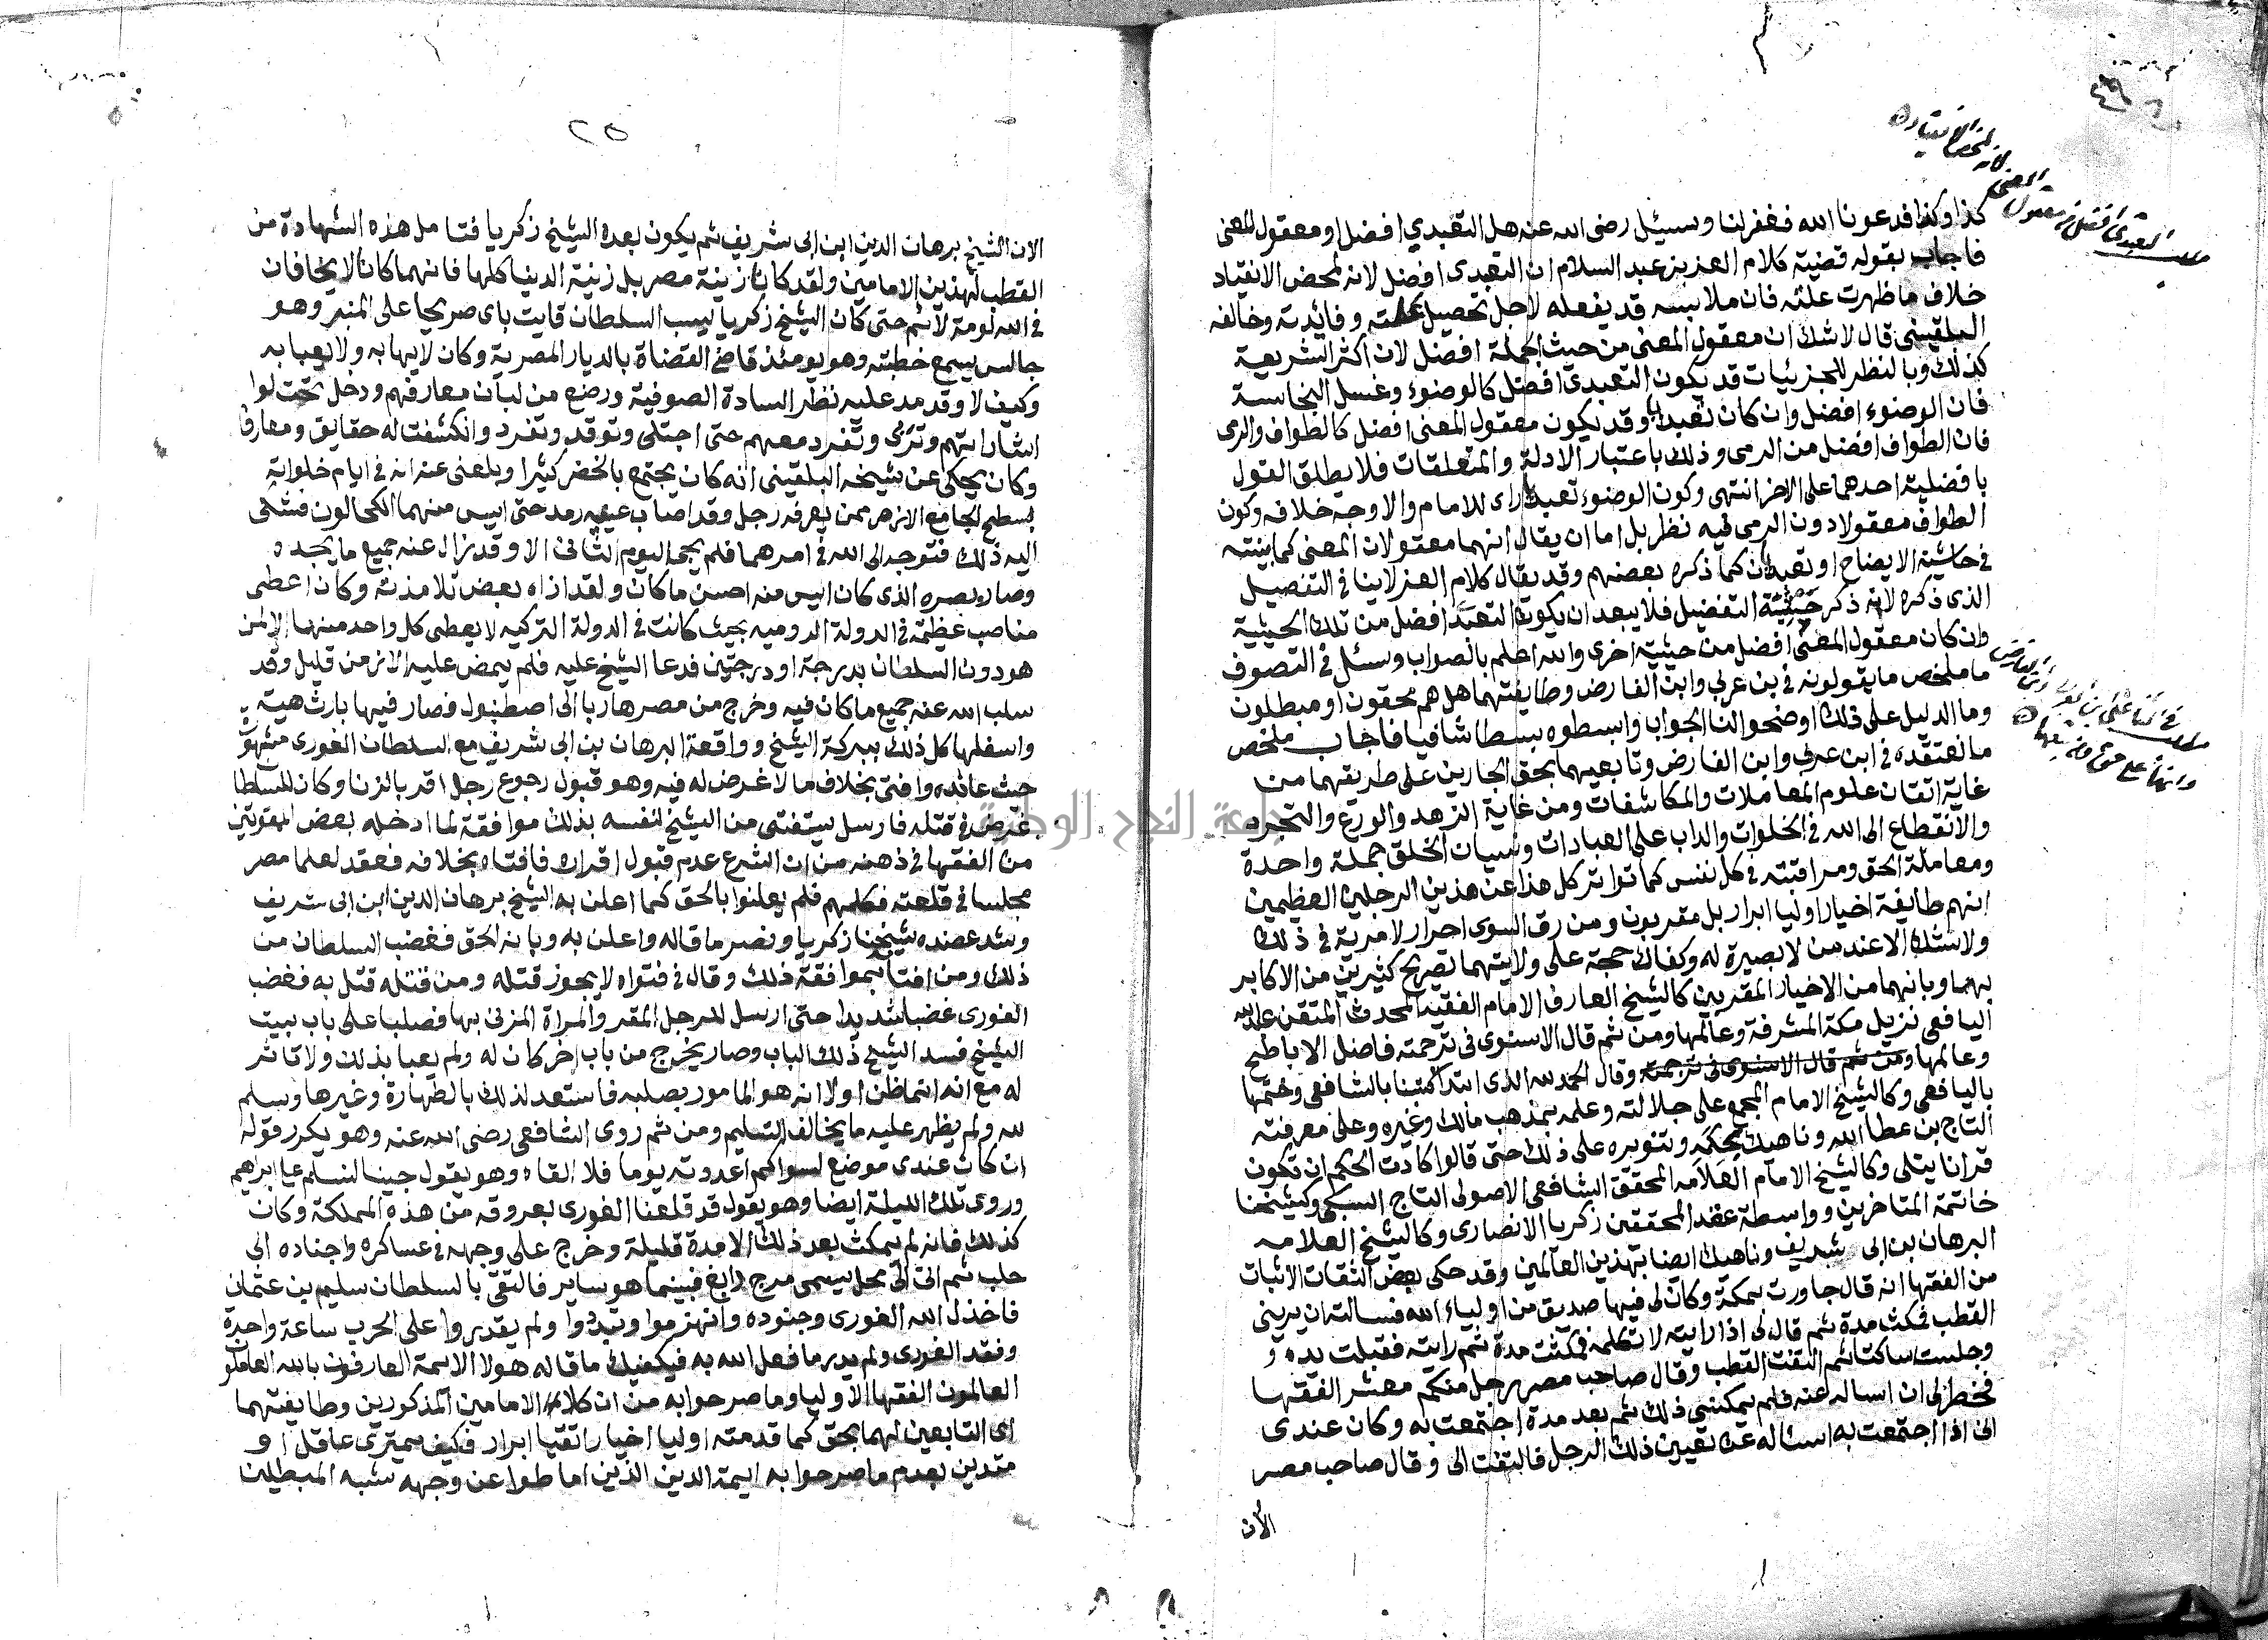 كذا وكذا فدعونا الله فغفر لنا وسئل رضى الله عنه هل التعبدي افضل او معقول المعنى
فاجاب بقوله قضية كلام العز بن عبد السلام ان التعبدى افضل لانه لمحض الانقياد
خلاف ما ظهرت علته فان ملابسه قد يفعله لاجل تحصيل علته وفائدته وخالفه
البلقينى قال لا شك ان معقول المعنى من حيث الجملة افضل لان اكثر الشريعة
كذلك وبالنظر للجزئيات قد يكون التعبدى افضل كالوضوء وغسل النجاسة
فان الوضوء افضل وان كان تعبديا وقد يكون معقول المعنى افضل كالطواف والرمى
فان الطواف افضل من الرمى وذلك باعتبار الادلة والمتعلقات فلا يطلق القول
بافضلية احدهما على الاخر انتهى وكون الوضوء تعبديا راى للامام والاوجه خلافه وكون
الطواف معقولا دون الرمى فيه نظر بل اما ان يقال انهما معقولان المعنى كما بينته
فى حاشية الايضاح او تعبديان كما ذكره بعضهم وقد يقال كلام العز لاينا فى التفصيل
الذى ذكره لانه ذكر حيثية التفضيل فلا يبعد ان يكون التعبد افضل من تلك الحيثية
وان كان معقول المعنى افضل من حيثية اخرى والله اعلم بالصواب وسئل فى التصوف
ما ملخص ما يقولونه فى بن عربى وابن الفارض وطايفتهما هل هم محقون او مبطلون
وما الدليل على ذلك اوضحوا لنا الجواب وابسطوه بسطا شافيا فاجاب ملخص
ما نعتقده فى ابن عربى وابن الفارض وتابعيهما بحق الجارين على طريقهما من
غاية اتقان علوم المعاملات والمكاشفات ومن غاية الزهد والورع والتجرد
والانقطاع الى الله فى الخلوات والداب على العبادات ونسيان الخلق جملة واحدة
ومعاملة الحق ومراقبته فى كل نفس كما تواتر كل هذا عن هذين الرجلين العظيمين
انهم طايفة اخيار اوليا ابرار بل مقربون ومن رق السوى احرار لا مرية فى ذلك
ولا شك الا عند من لا بصيرة له وكفاك حجة على ولايتهما تصريح كثيرين من الاكابر
بهما وبانهما من الاخيار المقربين كالشيخ العارف الامام الفقيه المحدث المتقن عبد الله
اليافعى نزيل مكة المشرفة وعالمها ومن ثم قال الاسنوى فى ترجمته فاضل الاباطح
وعالمها ومن ثم قال الاسنوى فى ترجمته وقال الحمد لله الذى ابتدا كتبنا بالشافعى وختمها
باليافعى وكالشيخ الامام المجمع على جلالته وعلمه بمذهب مالك وغيره وعلى معرفته
التاج بن عطا الله وناهيك بحكمه وبتنويره على ذلك حتى قالوا كادت الحكم ان تكون
قرانا يتلى وكالشيخ الامام العلامه المحقق الشافعى الاصولى التاج السبكى وكشيخنا
خاتمة المتاخرين وواسطة عقد المحققين زكريا الانصارى وكالشيخ العلامه
البرهان بن ابى شريف وناهيك ايضا بهذين العالمين وقد حكى بعض الثقات الاثبات
من الفقها انه قال جاورت بمكة وكان لى فيها صديق من اولياء الله فسالته ان يرينى
القطب فمكث مدة ثم قال لى اذا رايته لا تكلمه فمكثت مدة ثم رايته فقبلت يده و
وجلست ساكتا ثم التفت القطب وقال صاحب مصر رجل منكم معشر الفقها
فخطر لى ان اساله عنه فلم يمكننى ذلك ثم بعد مدة اجتمعت به وكان عندى
انى اذا اجتمعت به اساله عن تعيين ذلك الرجل فالتفت الى وقال صاحب مصر
الآن
٢٥
الان الشيخ برهان الدين ابن ابى شريف ثم يكون بعده الشيخ زكريا فتامل هذه الشهادة من
القطب لهذين الامامين ولقد كانا زينة مصر بل زينة الدنيا كلها فانهما كانا لا يخافان
فى الله لومة لائم حتى كان الشيخ زكريا يسب السلطان قايت باى صريحا على المنبر وهو
جالس يسمع خطبته وهو يومئذ قاضى القضاة بالديار المصرية وكان لا يهابه ولا يعبا به
وكيف لا وقد مد عليه نظر السادة الصوفية ورضع من لبان معارفهم ودخل تحت لوا
اشاراتهم وتربى وتفرد معهم حتى اجتلى وتوقد وتفرد وانكشفت له حقايق ومعارف
وكان يحكى عن شيخه البلقينى انه كان يجتمع بالخضر كثيرا وبلغنى عنه انه فى ايام خلواته
بسطح الجامع الازهر ممن يعرفه رجل وقد اصاب عينيه رمد حتى ايس منهما الكحالون فشكى
اليه ذلك فتوجه الى الله فى امرهما فلم يجئ اليوم الثانى الا وقد زال عنه جميع ما يجده
وصار بصره الذى كان ايس منه احسن ما كان ولقد اذاه بعض تلامذته وكان اعطى
مناصب عظيمة فى الدولة الروميه بحيث كانت فى الدولة التركيه لا يعطى كل واحد منها الا لمن
هو دون السلطان بدرجة او درجتين فدعا الشيخ عليه فلم يمض عليه الا زمن قليل وقد
سلب الله عنه جميع ما كان فيه وخرج من مصر هاربا الى اصطنبول وصار فيها بارث هيئة
واسفلها كل ذلك ببركة الشيخ وواقعة البرهان بن ابى شريف مع السلطان الغورى مشهورة
حيث عانده وافتى بخلاف ما لا غرض له فيه وهو قبول رجوع رجل اقر بالزنا وكان للسلطا
غرض فى قتله فارسل يستفتى من الشيخ لنفسه بذلك موافقة لما ادخله بعض الممقوتين
من الفقها فى ذهنه من ان الشرع عدم قبول اقراره فافتاه بخلافه فعقد لعلما مصر
مجلسا فى قلعته فكلمهم فلم يعلنوا بالحق كما اعلن به الشيخ برهان الدين ابن ابى شريف
وشد عضده شيخنا زكريا ونصر ما قاله واعلن به وبانه الحق فغضب السلطان من
ذلك ومن افتائهم بموافقة ذلك وقال فى فتواه لا يجوز قتله ومن قتله قتل به فغضب
الغورى غضبا شديدا حتى ارسل للرجل المقر والمراة المزنى بها فصلبا على باب بيت
الشيخ فسد الشيخ ذلك الباب وصار يخرج من باب اخر كان له ولم يعبا بذلك ولا تاثر
له مع انه انما ظن اولا انه هو المامور بصلبه فاستعد لذلك بالطهارة وغيرها وسلم
لله ولم يظهر عليه ما يخالف التسليم ومن ثم روى الشافعى رضى الله عنه وهو يكرر قوله
ان كان عندى موضع لسواكم اعدوته يوما فلا القاه وهو يقول جينا لنسلم على ابراهيم
وروى تلك الليلة ايضا وهو يقول قد قلعنا الغورى بعروقه من هذه المملكة وكان
كذلك فانه لم يمكث بعد ذلك الا مدة قليلة وخرج على وجهه فى عساكره واجناده الى
حلب ثم اتى الى محل يسمى مرج دابغ فبينما هو ساير فالتقى بالسلطان سليم بن عثمان
فاخذل الله الغورى وجنوده وانهزموا وتبددوا ولم يقدروا على الحرب ساعة واحدة
وفقد الغورى ولم يدر ما فعل الله به فيكفيك ما قاله هولا الائمة العارفون بالله العاملو
العالمون الفقها الاوليا وما صرحوا به من ان كلام الامامين المذكورين وطايفتهما
اى التابعين لهما بحق كما قدمته اوليا اخيار اتقيا ابرار فكيف يمترى عاقل او
متدين بعدم ما صرحوا به ايمة الدين الذين اماطوا عن وجهه شبه المبطلين
جامعة النجاح الوطنية